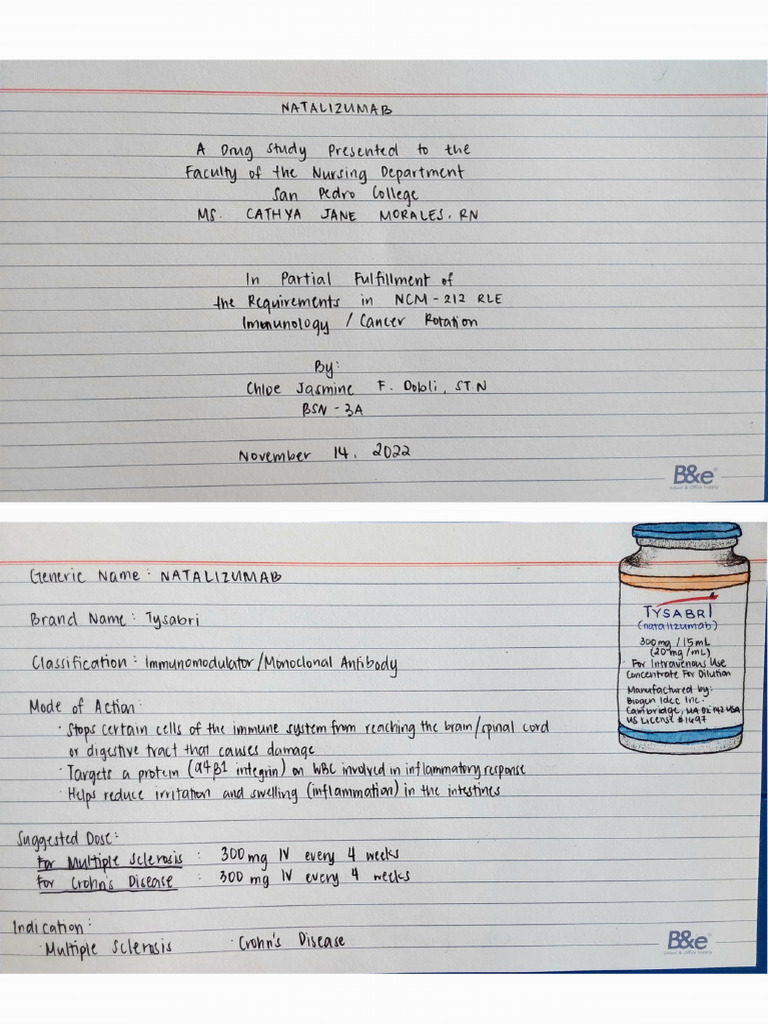 NATALIZUMAB
A Drug Study Presented to the
Faculty of the Nursing Department
San Pedro College
MS. CATHYA JANE MORALES, RN
In Partial Fulfillment of
the Requirements in NCM-212 RLE
Immunology / Cancer Rotation
By:
Chloe Jasmine F. Dolli, ST.N
BSN-3A
November 14, 2022
B&e
School & Office Supply
Generic Name: NATALIZUMAB
Brand Name: Tysabri
Classification: Immunomodulator/Monoclonal Antibody
Mode of Action:
· Stops certain cells of the immune system from reaching the brain/spinal cord
or digestive tract that causes damage
· Targets a protein (α4β1 integrin) on WBC involved in inflammatory response
· Helps reduce irritation and swelling (inflammation) in the intestines
Suggested Dose:
For Multiple Sclerosis : 300 mg IV every 4 weeks
For Crohn's Disease : 300 mg IV every 4 weeks
Indication:
· Multiple Sclerosis · Crohn's Disease
TYSABRI
(natalizumab)
300mg/15mL
(20mg/mL)
For Intravenous Use
Concentrate For Dilution
Manufactured by:
Biogen Idec Inc.
Cambridge, MA 02142 USA
US License #1697
B&e
School & Office Supply